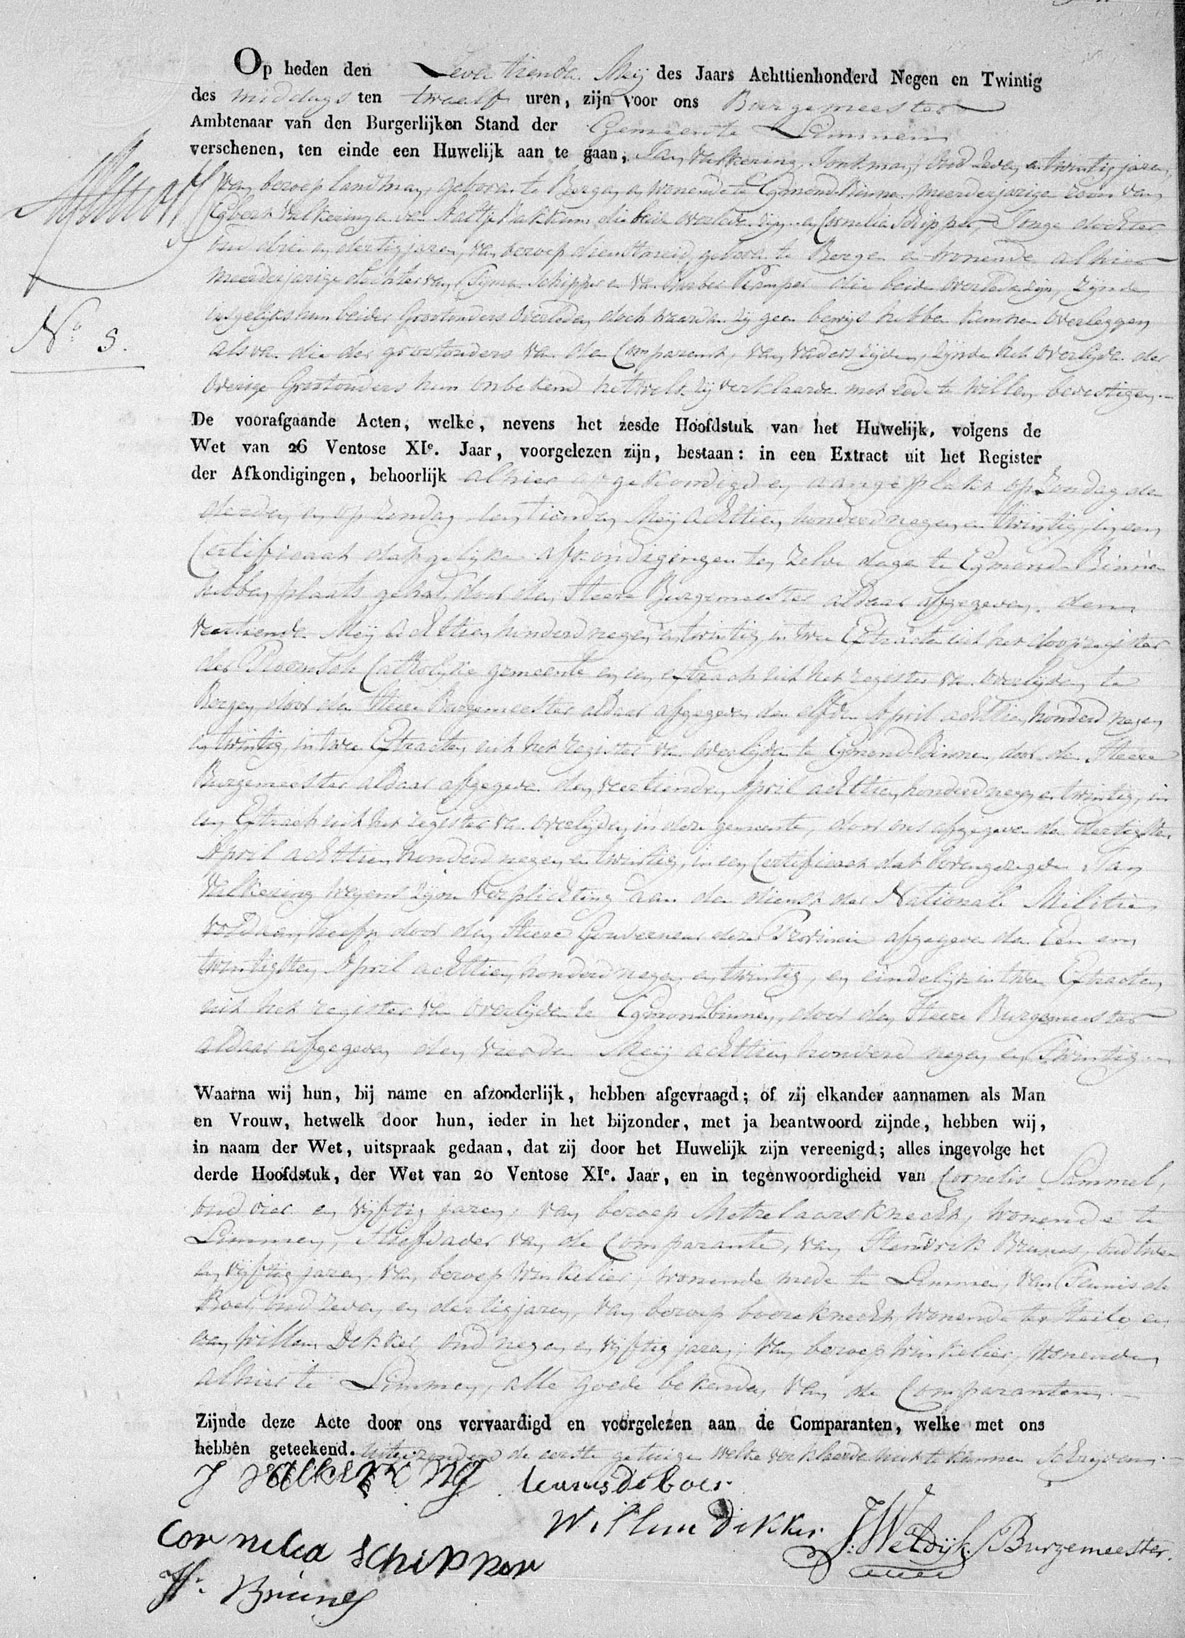 Op heden den Zeventiende Meij des Jaars Achttienhonderd Negen en Twintig
des middags ten twaalf uren, zijn voor ons Burgemeester
Ambtenaar van den Burgerlijken Stand der Gemeente Limmen
verschenen, ten einde een Huwelijk aan te gaan, Jan Valkering, Jonkman, oud Zeven en twintig jaren,
van beroep landman, geboren te Bergen en wonende te Egmond Binnen, meerderjarige zoon van
Egbert Valkering en van die beide overleden zijn en Cornelia Schipper, Jonge dochter
oud drie en dertig jaren, van beroep dienstmeid, geboren te Bergen en wonende alhier
meerderjarige dochter van Sijmen Schipper en van die beide overleden zijn, zijnde
insgelijks hun beider Grootouders overleden, doch waarvan zij geen bewijs hebben kunnen overleggen
als van die der grootouders van den Comparant, van vaders zijden, zijnde het overlijden der
overige Grootouders hun onbekend hetwelk zij verklaarden met eede te willen bevestigen.
No. 3.
De voorafgaande Acten, welke, nevens het zesde Hoofdstuk van het Huwelijk, volgens de
Wet van 26 Ventose XIe. Jaar, voorgelezen zijn, bestaan: in een Extract uit het Register
der Afkondigingen, behoorlijk alhier afgekondigd en aangeplakt op Zondag den
derden en op Zondag den tienden Meij achttien honderd negen en twintig, in een
Certificaat dat gelijke afkondigingen ten zelve dage te Egmond Binnen
hebben plaats gehad, door den Heere Burgemeester aldaar afgegeven den
veertiende Meij achttien honderd negen en twintig, in twee Extracten uit het doopregister
der Roomsch Catholijke gemeente en een extract uit het register van overlijden te
Bergen, door den Heere Burgemeester aldaar afgegeven den elfden April achttien honderd negen
en twintig, in twee Extracten uit het register van overlijden te Egmond Binnen, door den Heere
Burgemeester aldaar afgegeven den veertienden April achttien honderd negen en twintig, in
een Extract uit het register van overlijden in deze gemeente, door ons afgegeven den dertigsten
April achttien honderd negen en twintig, in een Certificaat dat bovengezegde Jan
Valkering wegens zijne verpligting aan den dienst der Nationale Militie
voldaan heeft door den Heere Gouverneur dezer Provincie afgegeven den Een en
twintigsten April achttien honderd negen en twintig, en eindelijk in twee Extracten
uit het register van overlijden te Egmondbinnen, door den Heere Burgemeester
aldaar afgegeven den vierden Meij achttien honderd negen en Twintig
Waarna wij hun, bij name en afzonderlijk, hebben afgevraagd; of zij elkander aannamen als Man
en Vrouw, hetwelk door hun, ieder in het bijzonder, met ja beantwoord zijnde, hebben wij,
in naam der Wet, uitspraak gedaan, dat zij door het Huwelijk zijn vereenigd; alles ingevolge het
derde Hoofdstuk, der Wet van 20 Ventose XIe. Jaar, en in tegenwoordigheid van Cornelis
oud vier en vijftig jaren, van beroep Metzelaars Knecht, wonende te
Limmen, Stiefvader van de Comparante, van Hendrik Bruines, oud twee
en vijftig jaren, van beroep winkelier, wonende mede te Limmen, van Teunis de
Boer, oud Zeven en dertig jaren, van beroep boere knecht, wonende te Heilo en
van Willem Dekker, oud negen en vijftig jaren, van beroep winkelier, wonende
alhier te Limmen, alle goede bekenden van de Comparanten.
Zijnde deze Acte door ons vervaardigd en voorgelezen aan de Comparanten, welke met ons
hebben geteekend. uitgezonderd de eerste getuige welke verklaarde niet te kunnen schrijven.
J Valkering teunis de boer
Willem Dekker J. Weldijk Burgemeester.
Cornelia Schipper
H. Bruines